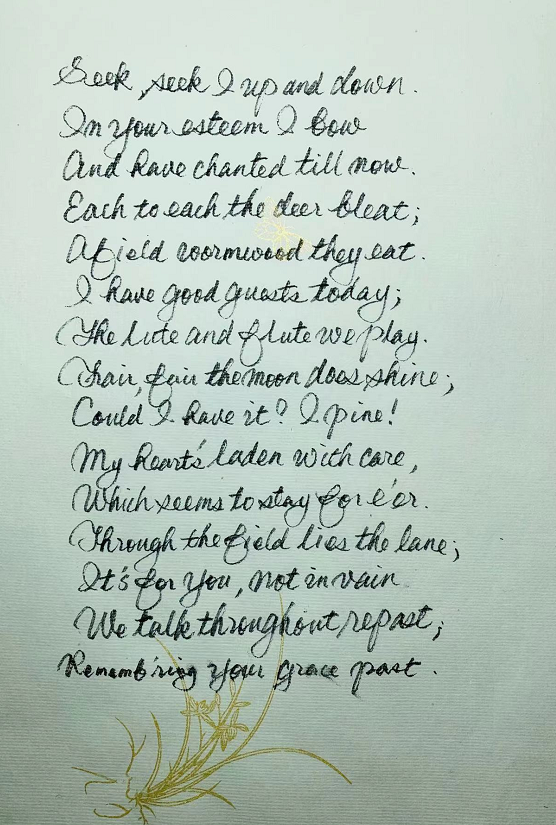 Seek, seek I up and down.
In your esteem I bow
And have chanted till now.
Each to each the deer bleat;
Afield wormwood they eat.
I have good guests today;
The lute and flute we play.
Fair, fair the moon does shine;
Could I have it? I pine!
My heart's laden with care,
Which seems to stay for e'er.
Through the field lies the lane;
It's for you, not in vain
We talk throughout repast;
Rememb'ring your grace past.